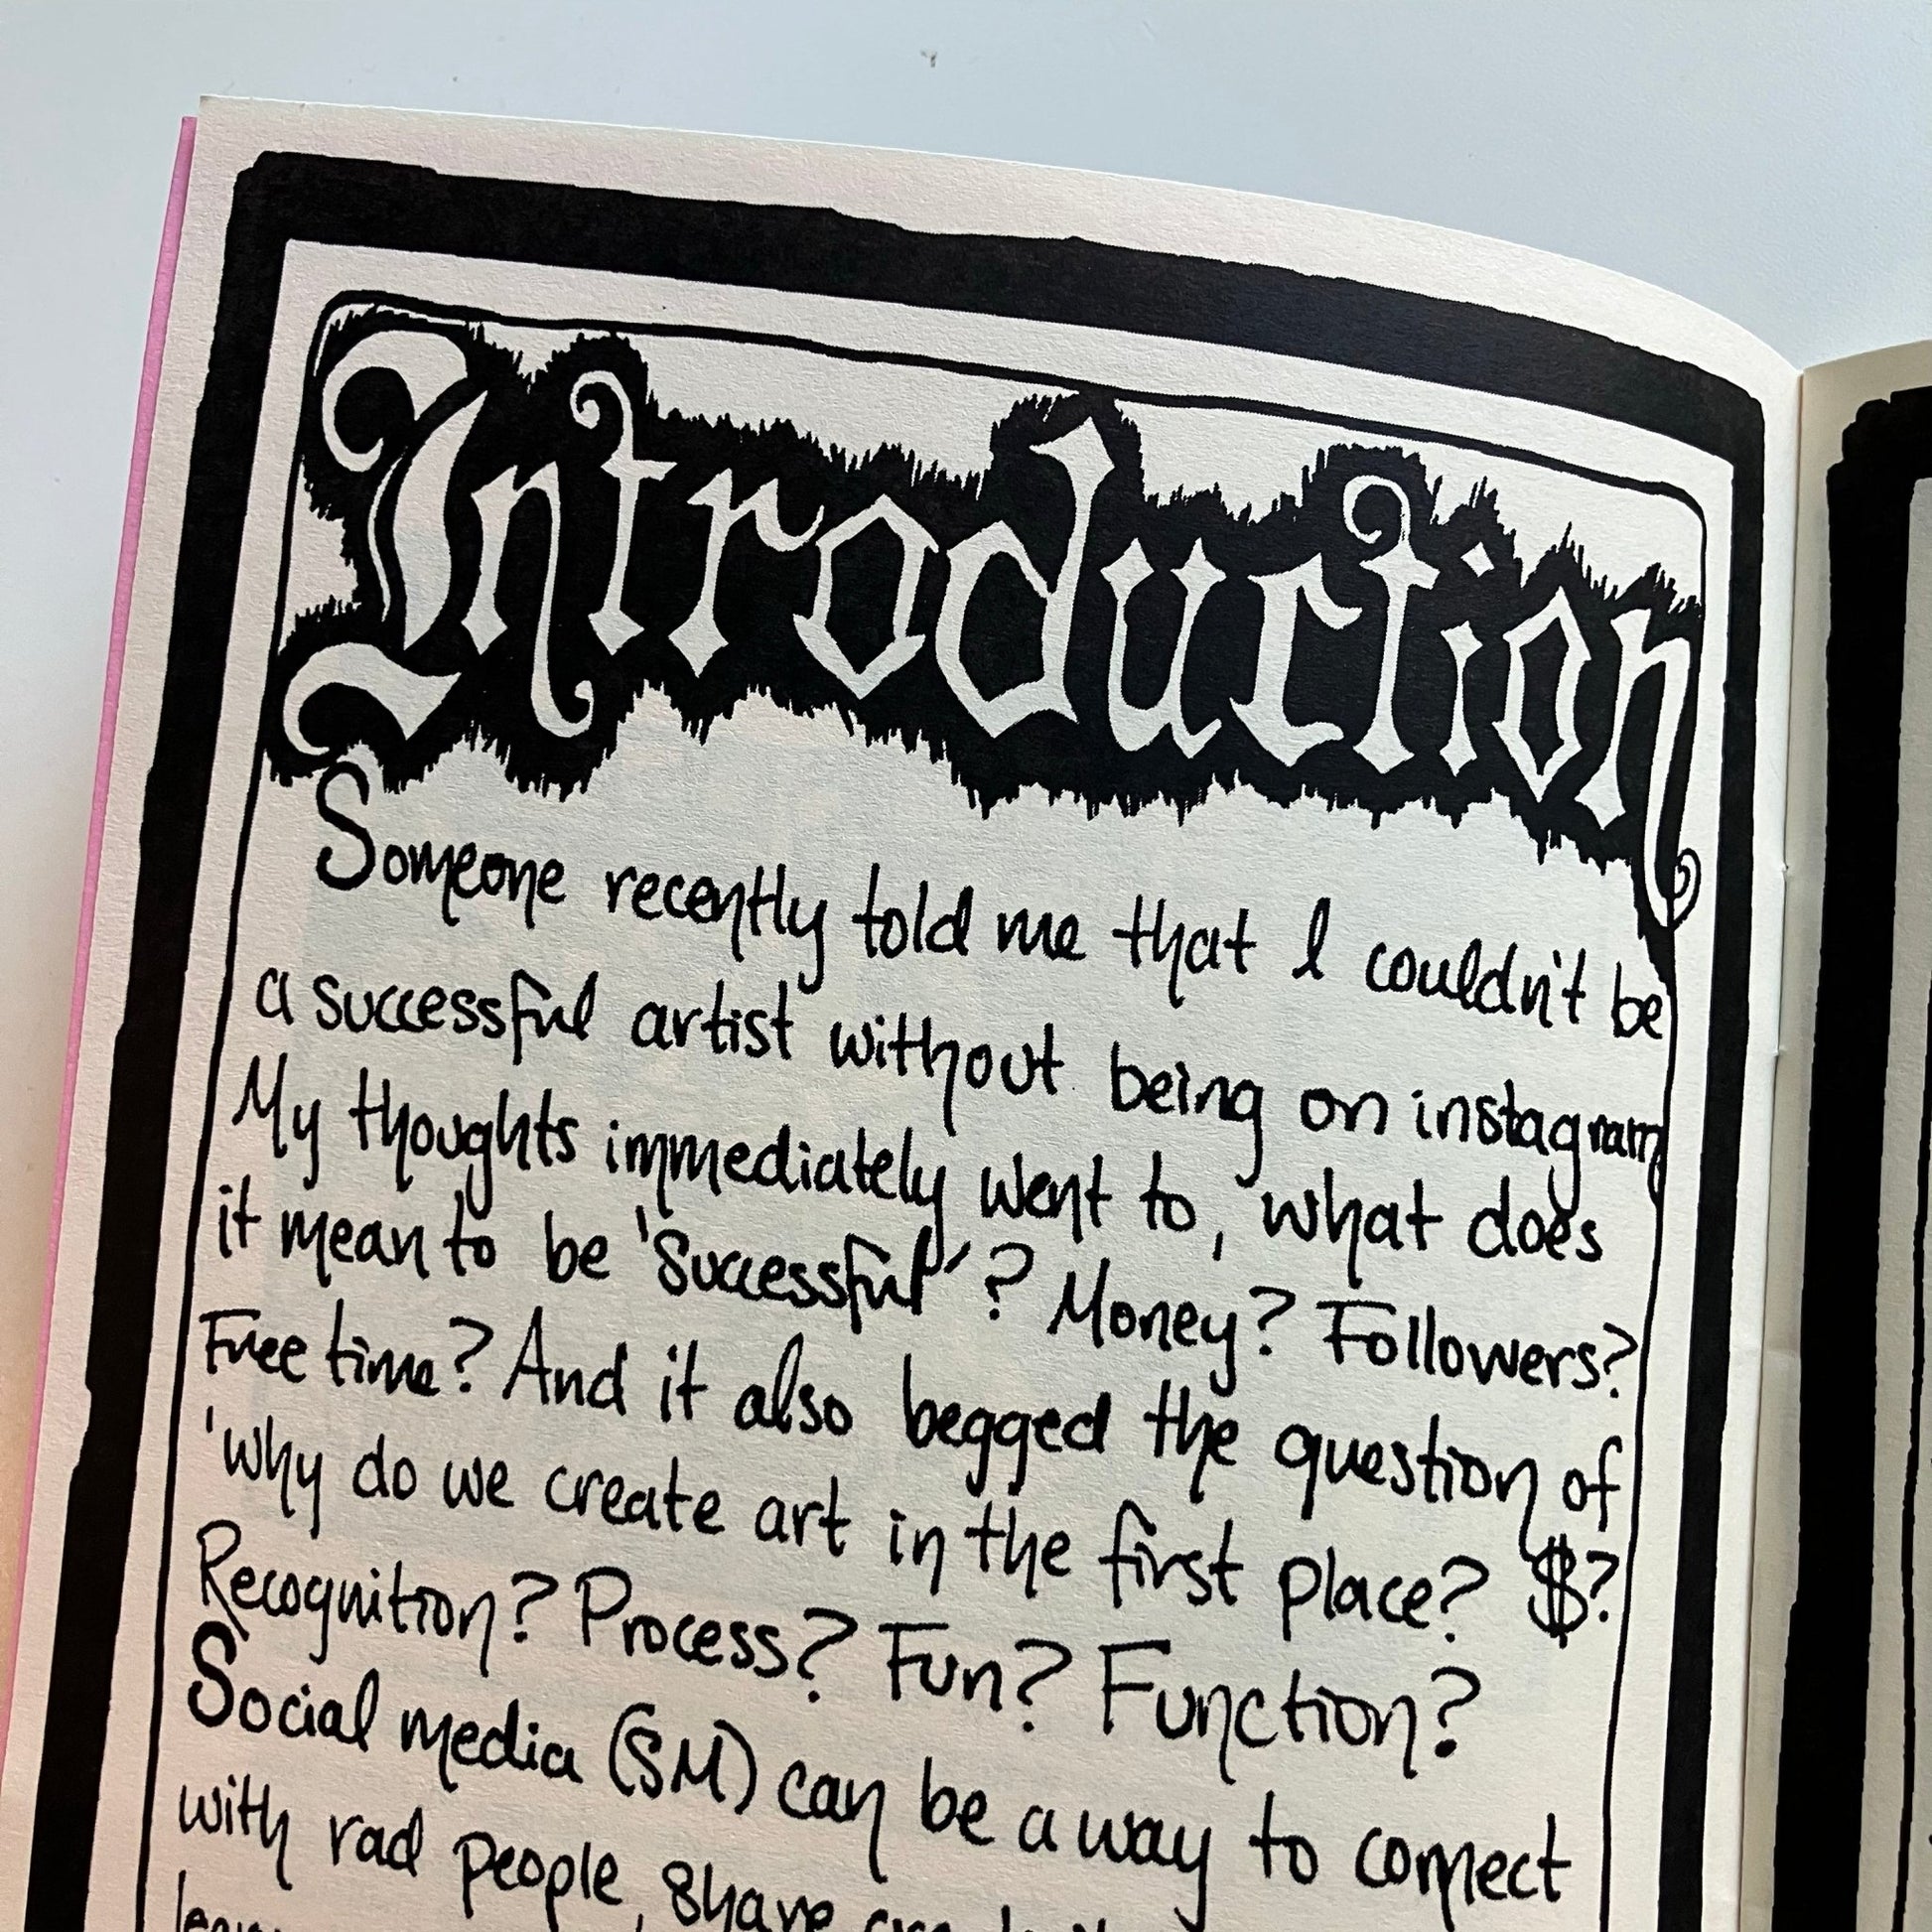 Introduction
Someone recently told me that I couldn't be
a successful artist without being on instagram.
My thoughts immediately went to, what does
it mean to be 'Successful'? Money? Followers?
Free time? And it also begged the question of
'why do we create art in the first place? $?
Recognition? Process? Fun? Function?
Social media (SM) can be a way to connect
with rad people, share